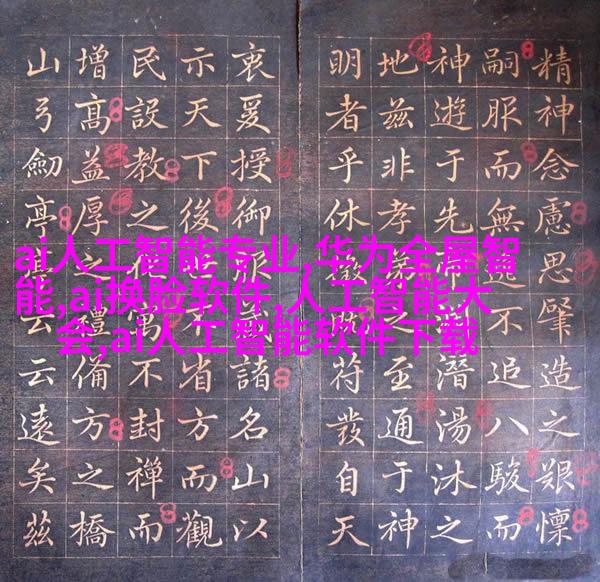 ai人工智能专业,华为全屋智
能,ai换脸软件,人工智能大
会,ai人工智能软件下载
精神念慮思肇造之艱懍
嗣服而無不追八駿而
神遊于先潛湯沐之
地茲非孝弟之至通于神
明者乎休符發自天
衷爰授御服諸名山以
示天下後省方而觀
民設教之寓不封禪而
增高益厚之禮備方之橋
山弓劒亭云云遠矣茲